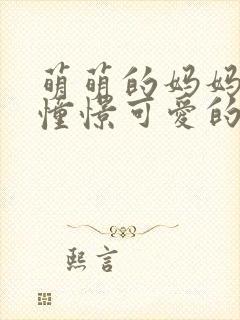 萌萌的妈妈
憧憬可爱的
熙言